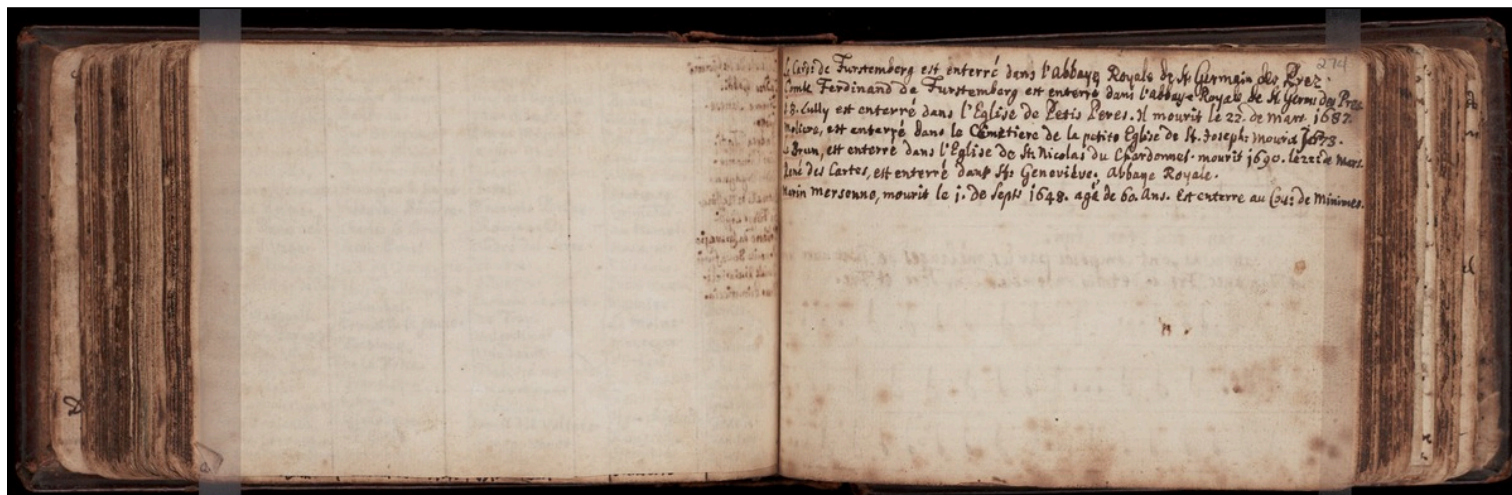 274
Card: de Furstemberg est enterré dans l'Abbaye Royale de St Germain des Prez.
Comte Ferdinand de Furstemberg est enterré dans l'Abbaye Royale de St Germ: des Prez
J. B. Lully est enterré dans l'Eglise de Petis Peres. Il mourut le 22. de Mars 1687.
Moliere, est enterré dans le Cemetiere de la petite Eglise de St. Joseph: mourut 1673.
Le Brun, est enterré dans l'Eglise de St: Nicolas du Chardonnet. mourit 1690. le 22: de Mars.
René des Cartes, est enterré dans Ste Geneviéve. Abbaye Royale.
Marin Mersenne, mourit le 1. de Septr 1648. agé de 60. Ans. Est enterre au de Minimes.